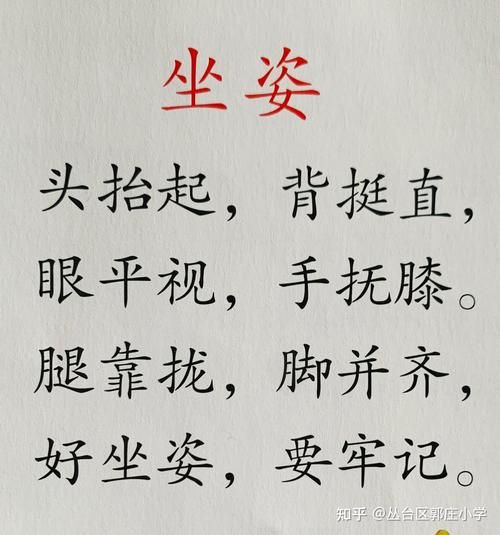 坐姿
头抬起，背挺直，
眼平视，手抚膝。
腿靠拢，脚并齐，
好坐姿，要牢记。
知乎 @丛台区郭庄小学